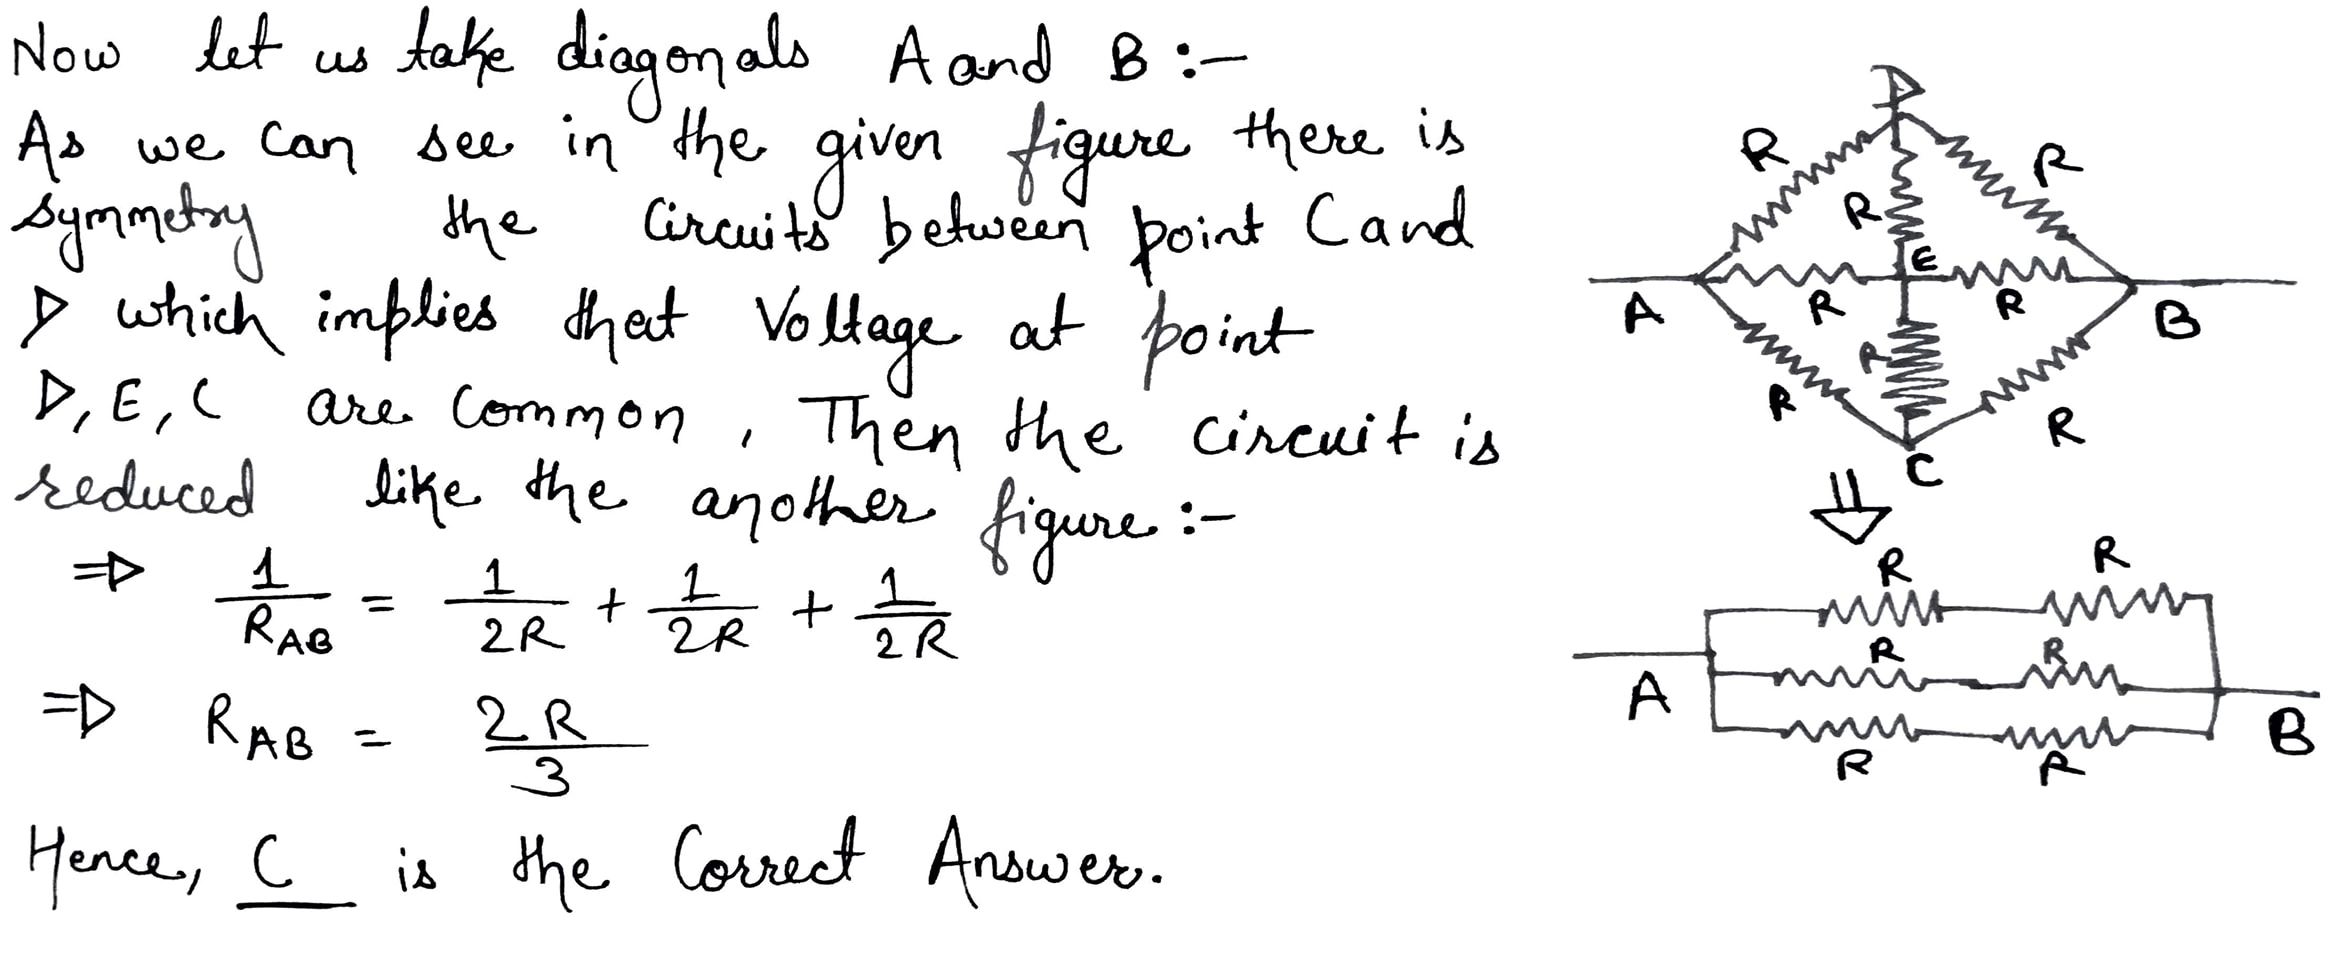 Now let us take diagonals A and B :-
As we can see in the given figure there is
symmetry the Circuits between point C and
D which implies that Voltage at point
D, E, C are common, Then the circuit is
reduced like the another figure :-
⇒ 1/R_AB = 1/2R + 1/2R + 1/2R
⇒ R_AB = 2R/3
Hence, C is the Correct Answer.
D
R
R
R
E
A
R
R
B
R
R
R
C
⇓
R
R
R
R
A
B
R
R